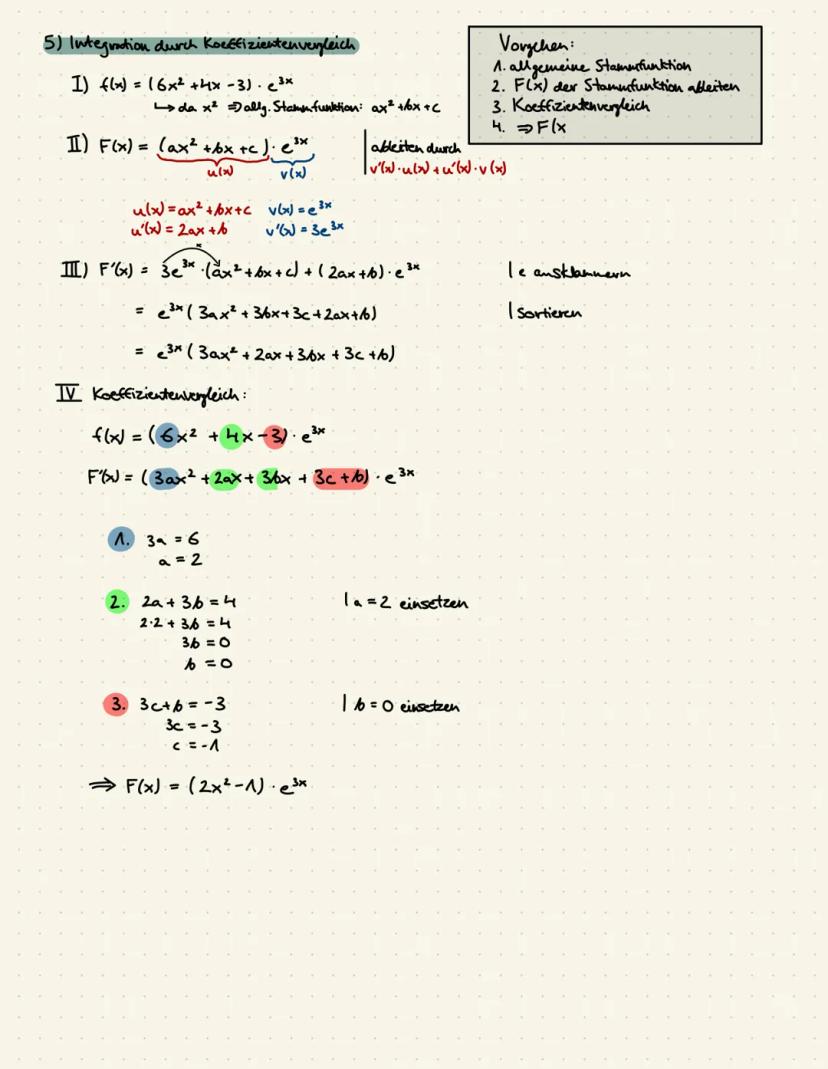 5) Integration durch Koeffizientenvergleich
Vorgehen:
1. allgemeine Stammfunktion
2. F(x) der Stammfunktion ableiten
3. Koeffizientenvergleich
4. ⇒ F(x
I) f(x) = (6x² + 4x - 3) · e³ˣ
↳ da x² ⇒ allg. Stammfunktion: ax² + bx + c
II) F(x) = (ax² + bx + c) · e³ˣ | ableiten durch
u(x) v(x) v'(x) · u(x) + u'(x) · v(x)
u(x) = ax² + bx + c v(x) = e³ˣ
u'(x) = 2ax + b v'(x) = 3e³ˣ
III) F'(x) = 3e³ˣ · (ax² + bx + c) + (2ax + b) · e³ˣ | e ausklammern
= e³ˣ (3ax² + 3bx + 3c + 2ax + b) | sortieren
= e³ˣ (3ax² + 2ax + 3bx + 3c + b)
IV Koeffizientenvergleich:
f(x) = (6x² + 4x - 3) · e³ˣ
F'(x) = (3ax² + 2ax + 3bx + 3c + b) · e³ˣ
1. 3a = 6
a = 2
2. 2a + 3b = 4 | a = 2 einsetzen
2·2 + 3b = 4
3b = 0
b = 0
3. 3c + b = -3 | b = 0 einsetzen
3c = -3
c = -1
⇒ F(x) = (2x² - 1) · e³ˣ